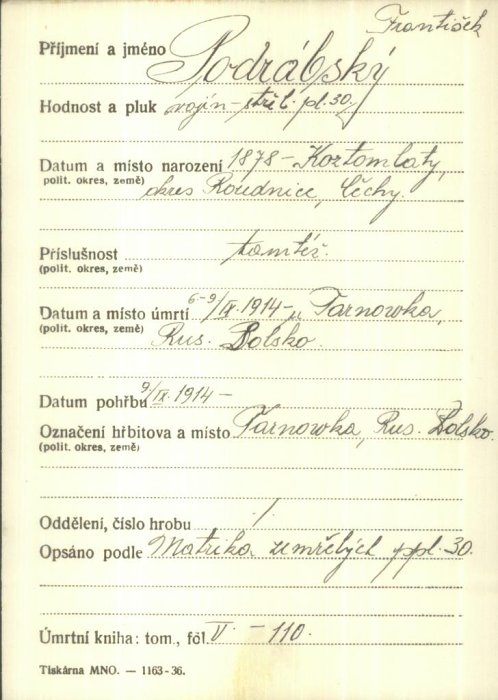 František
Příjmení a jméno Podrábský
Hodnost a pluk vojín - střel. pl. 30.
Datum a místo narození 1878 - Kostomlaty,
(polit. okres, země) okres Roudnice, Čechy.
Příslušnost tomtéž.
(polit. okres, země)
Datum a místo úmrtí 6-9/IX. 1914 - u Tarnowka,
(polit. okres, země) Rus. Polsko.
Datum pohřbu 9/IX. 1914 -
Označení hřbitova a místo Tarnowka, Rus. Polsko.
(polit. okres, země)
Oddělení, číslo hrobu /
Opsáno podle Matrika zemřelých ppl. 30.
Úmrtní kniha: tom., fol. V. - 110.
Tiskárna MNO. — 1163-36.